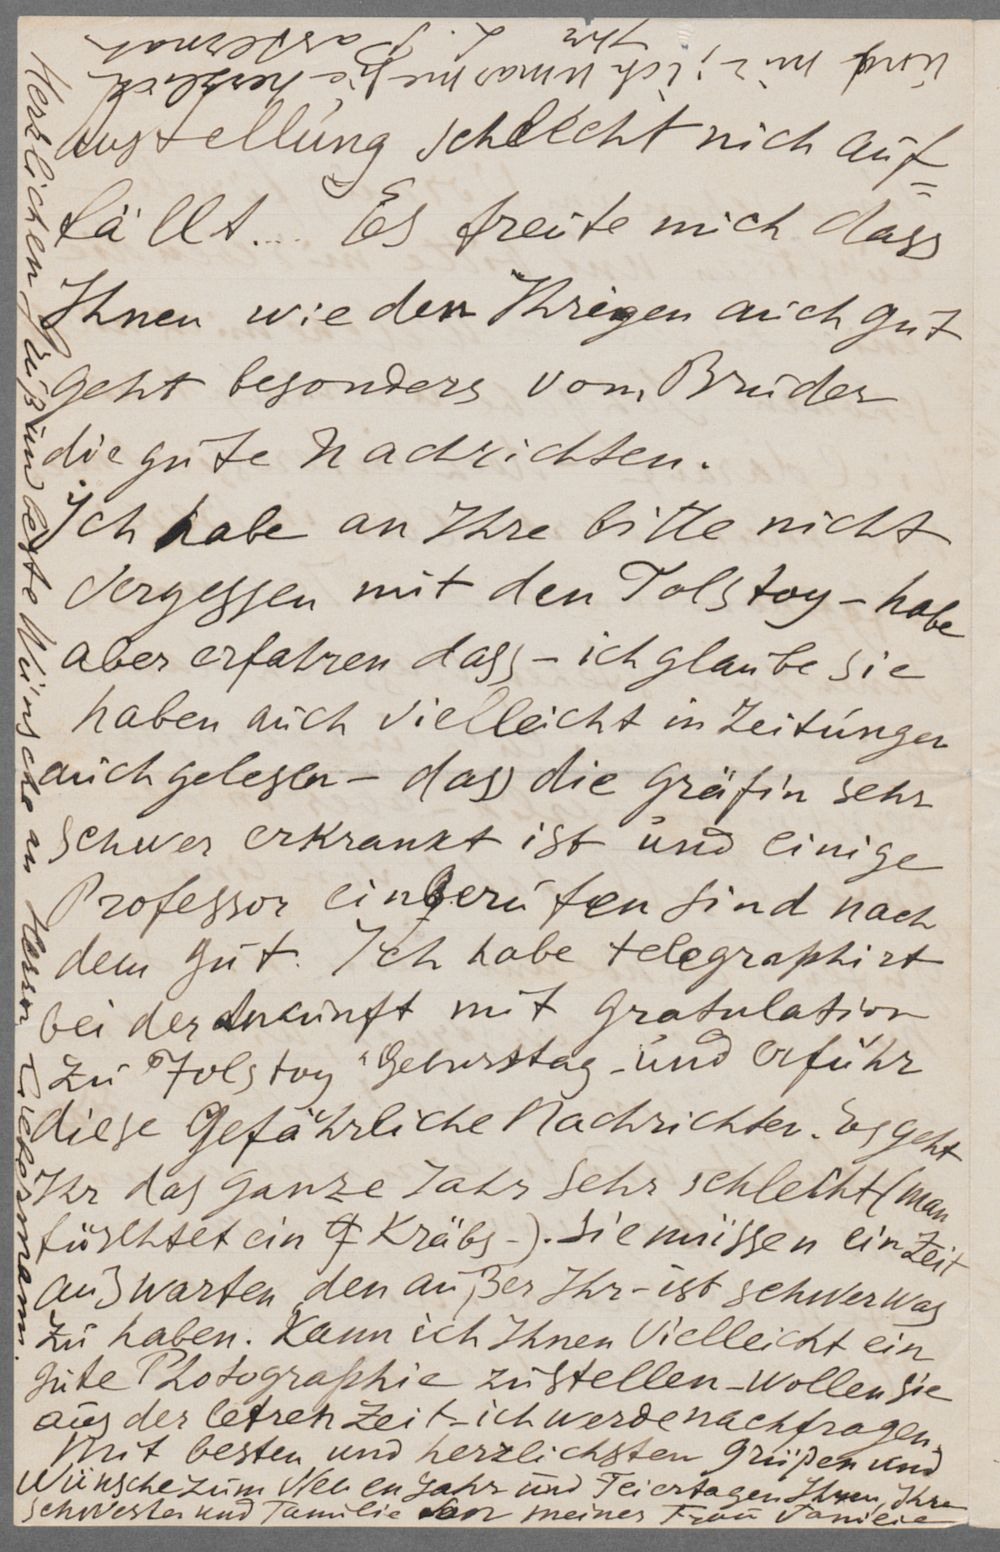 Ausstellung schlecht nich auf=
fällt.... Es freute mich dass
Ihnen wie den Ihrigen auch gut
geht besonders vom Bruder
die gute Nachrichten.
Ich habe an Ihre bitte nicht
vergessen mit den Tolstoy - habe
aber erfahren dass - ich glaube sie
haben auch vielleicht in Zeitungen
auch gelesen - dass die gräfin sehr
schwer erkrankt ist und einige
Professor einberufen sind nach
dem Gut. Ich habe telegraphirt
bei der Ankunft mit gratulation
zu Tolstoy Geburstag - und erfuhr
diese Gefährliche Nachrichten. Es geht
Ihr das ganze Jahr sehr schlecht (man
fürchtet ein Kräbs-). Sie müssen ein Zeit
auswarten, den außer Ihr - ist schwer was
zu haben. Kann ich Ihnen Vielleicht ein
gute Photographie zustellen - wollen sie
aus der letzen Zeit - ich werde nachfragen.
Mit besten und herzlichsten Grüßen und
Wünsche zum Neuen Jahr und Feiertagen Ihnen, Ihre
Schwester und Familie von meiner Frau Familie
und mir; ich umarme Sie herzlich
Ihr L. Pasternak
Herzlichen Gruß und beste Wünsche an Herrn Liebermann.